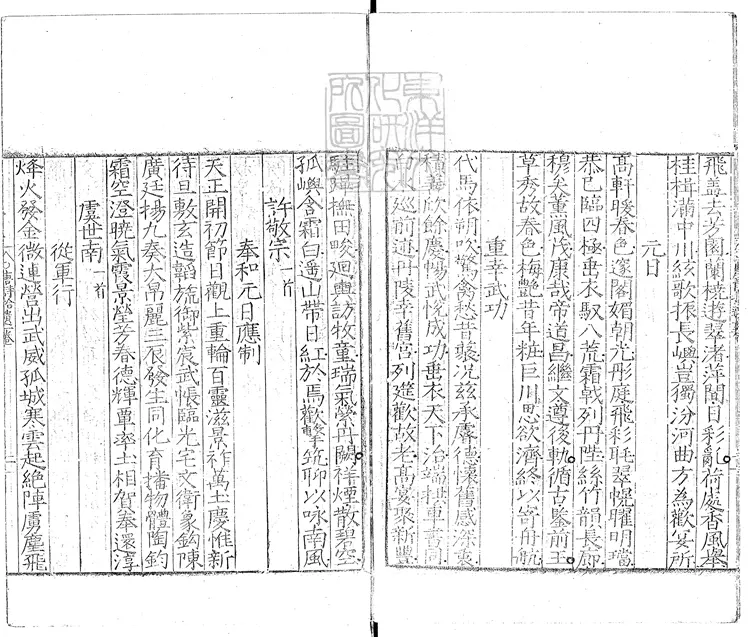 飛蓋去芳園蘭橈遊翠渚萍間日彩亂荷處香風舉
桂楫滿中川絃歌振長嶼豈獨汾河曲方為歡宴所
元日
高軒曖春色邃閣媚朝光彤庭飛彩旄翠幌曜明璫
恭己臨四極垂衣馭八荒霜戟列丹陛絲竹韻長廊
穆矣薰風茂康哉帝道昌繼文遵後軌循古鑒前王
草秀故春色梅艷昔年粧巨川思欲濟終以寄舟航
重幸武功
代馬依朔吹驚禽愁昔叢況茲承眷德懷舊感深衷
積善忻餘慶暢武悅成功垂衣天下治端拱車書同
白水巡前迹丹陵幸舊宮列筵歡故老高宴聚新豐
駐蹕撫田畯迴輿訪牧童瑞氣縈丹闕祥煙散碧空
孤嶼含霜白遙山帶日紅於焉歡擊筑聊以咏南風
許敬宗一首
奉和元日應制
天正開初節日觀上重輪百靈滋景祚萬玉慶惟新
待旦敷玄造韜旒御紫宸武帳臨光宅文衛象鈎陳
廣廷揚九奏大帛麗三辰發生同化育播物體陶鈞
霜空澄曉氣霞景瑩芳春德輝覃率土相賀奉還淳
虞世南一首
從軍行
烽火發金微連營出武威孤城寒雲起絕陣虜塵飛
東洋文
化研究
所圖